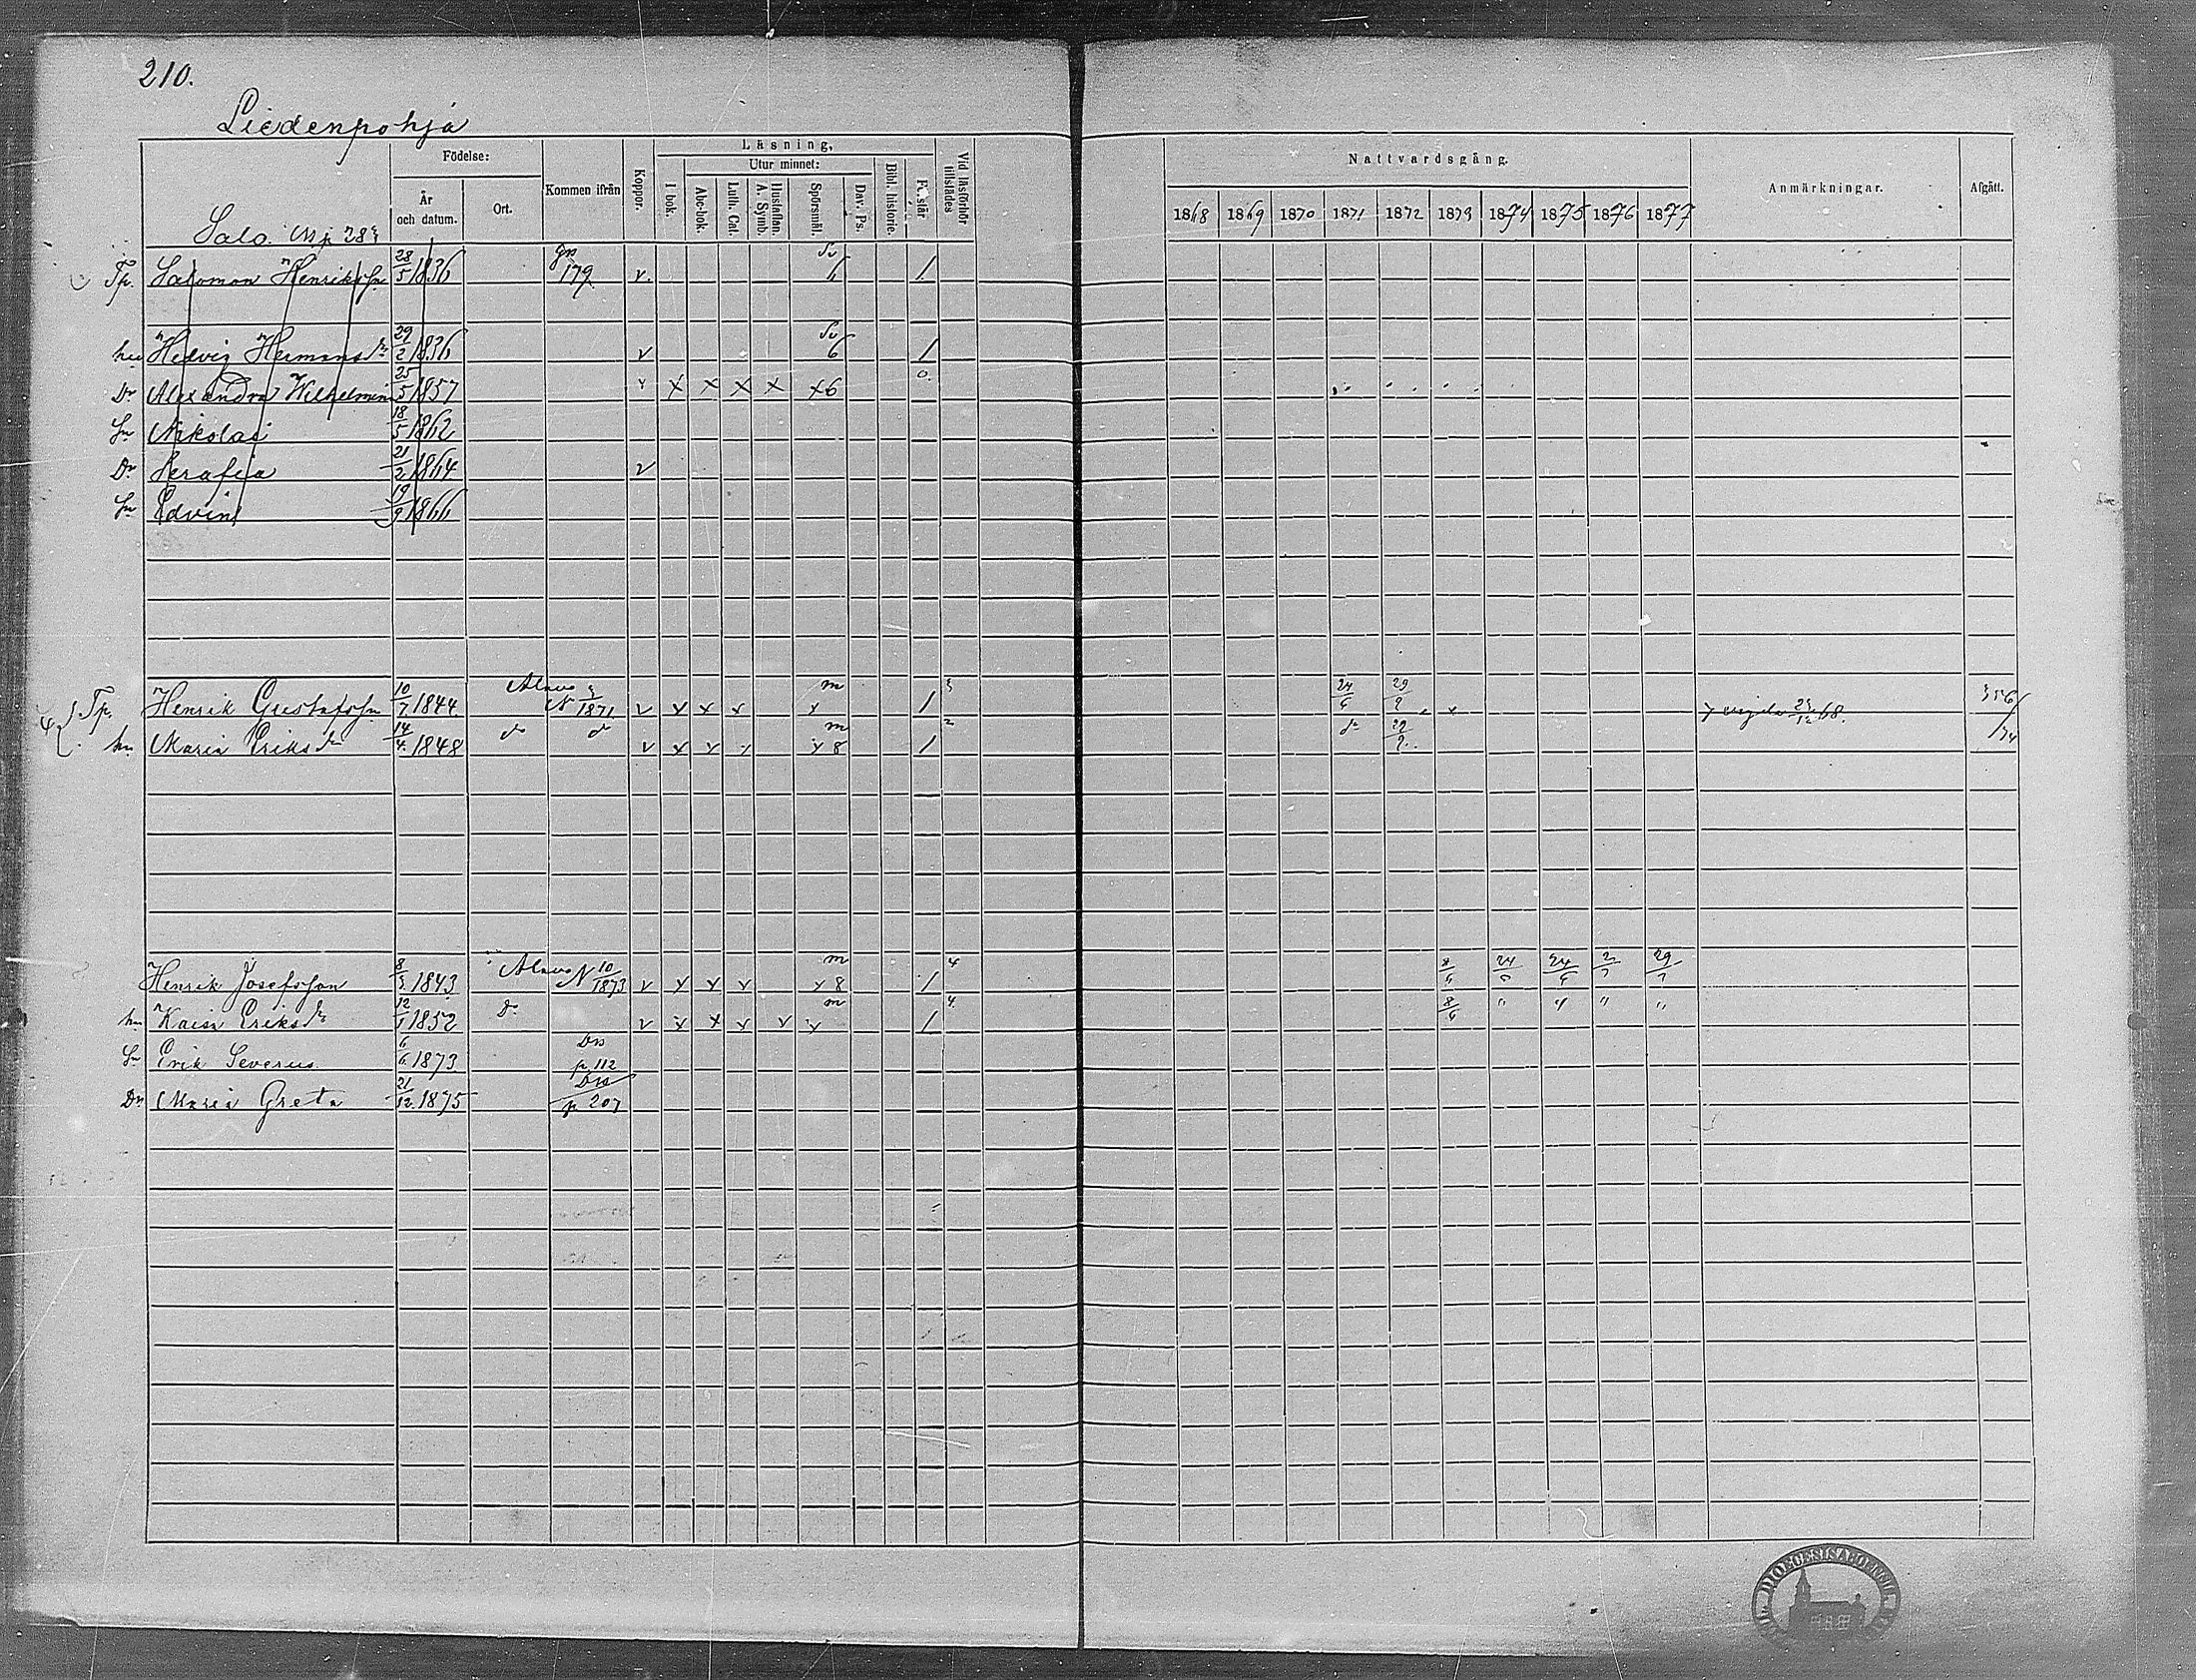 210.
Liedenpohja
Födelse:
År och datum.
Ort.
Kommen ifrån
Koppor.
Läsning,
I bok.
Utur minnet:
Abc-bok.
Luth. Cat.
Hustaflan. A. Symb.
Spörsmål.
Dav. Ps.
Bibl. historie.
Vid läsförhör tillstädes
Nattvardsgång.
1868 1869 1870 1871 1872 1873 1874 1875 1876 1877
Anmärkningar.
Afgått.
Salo.
Tp. Salomon Henrikssn 28/5 1836 179 v. Sv 6 /
hu Hedvig Hermansdr 29/2 1836 v Sv 6 /
Dr Alexandra Wilhelmina 25/5 1857 v x x x x x6 0.
Sn Nikolai 18/5 1862
Dr Serafia 21/2 1864 v
Sn Edvin 19/9 1866
Tp. Henrik Gustafssn 10/7 1844. Alavo 1871. v x x x m x / 3 24/6 29/9 x 23/12 68. 356/74
hu Maria Eriksdr 14/4. 1848 do do v x x x m x 8 / 2 do 29/9.
Henrik Josefsson 8/3. 1843 Alavo N 10/1873 v x x x m x 8 / 4 8/6 24/6 29/7
hu Kaisa Eriksdr 12/1 1852 do v x x x x m x / 4. 8/6 " " " "
Sn Erik Severus. 6/6. 1873 Ds p. 112
Dr Maria Greta 21/12. 1875 Ds p 207